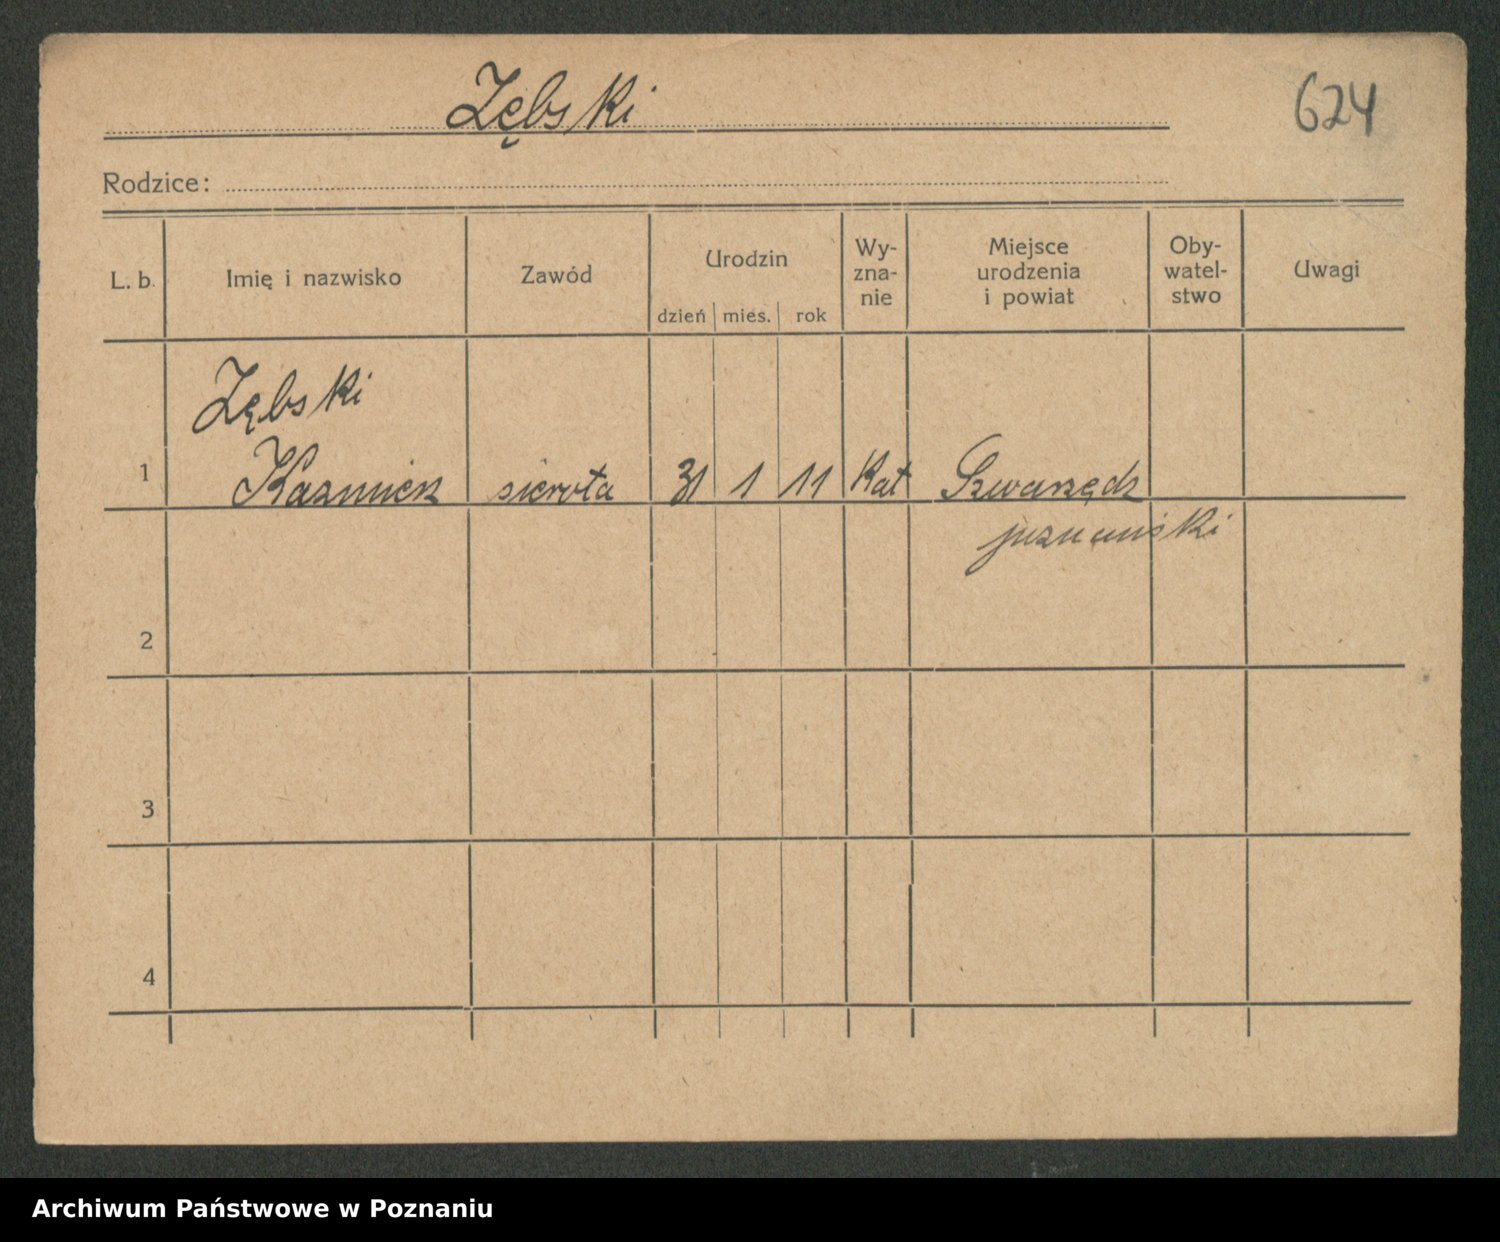 Zębski
624
Rodzice:
L. b. Imię i nazwisko Zawód Urodzin dzień mies. rok Wy-zna-nie Miejsce urodzenia i powiat Oby-watel-stwo Uwagi
Zębski
1 Kazmierz sierota 31 1 11 Kat Swarzędz
poznański
2
3
4
Archiwum Państwowe w Poznaniu